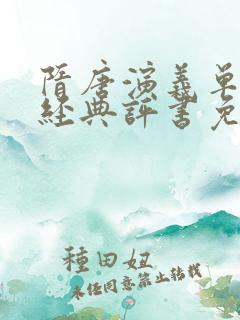 隋唐演義单
經典評書免
種田妞
未经同意禁止转载